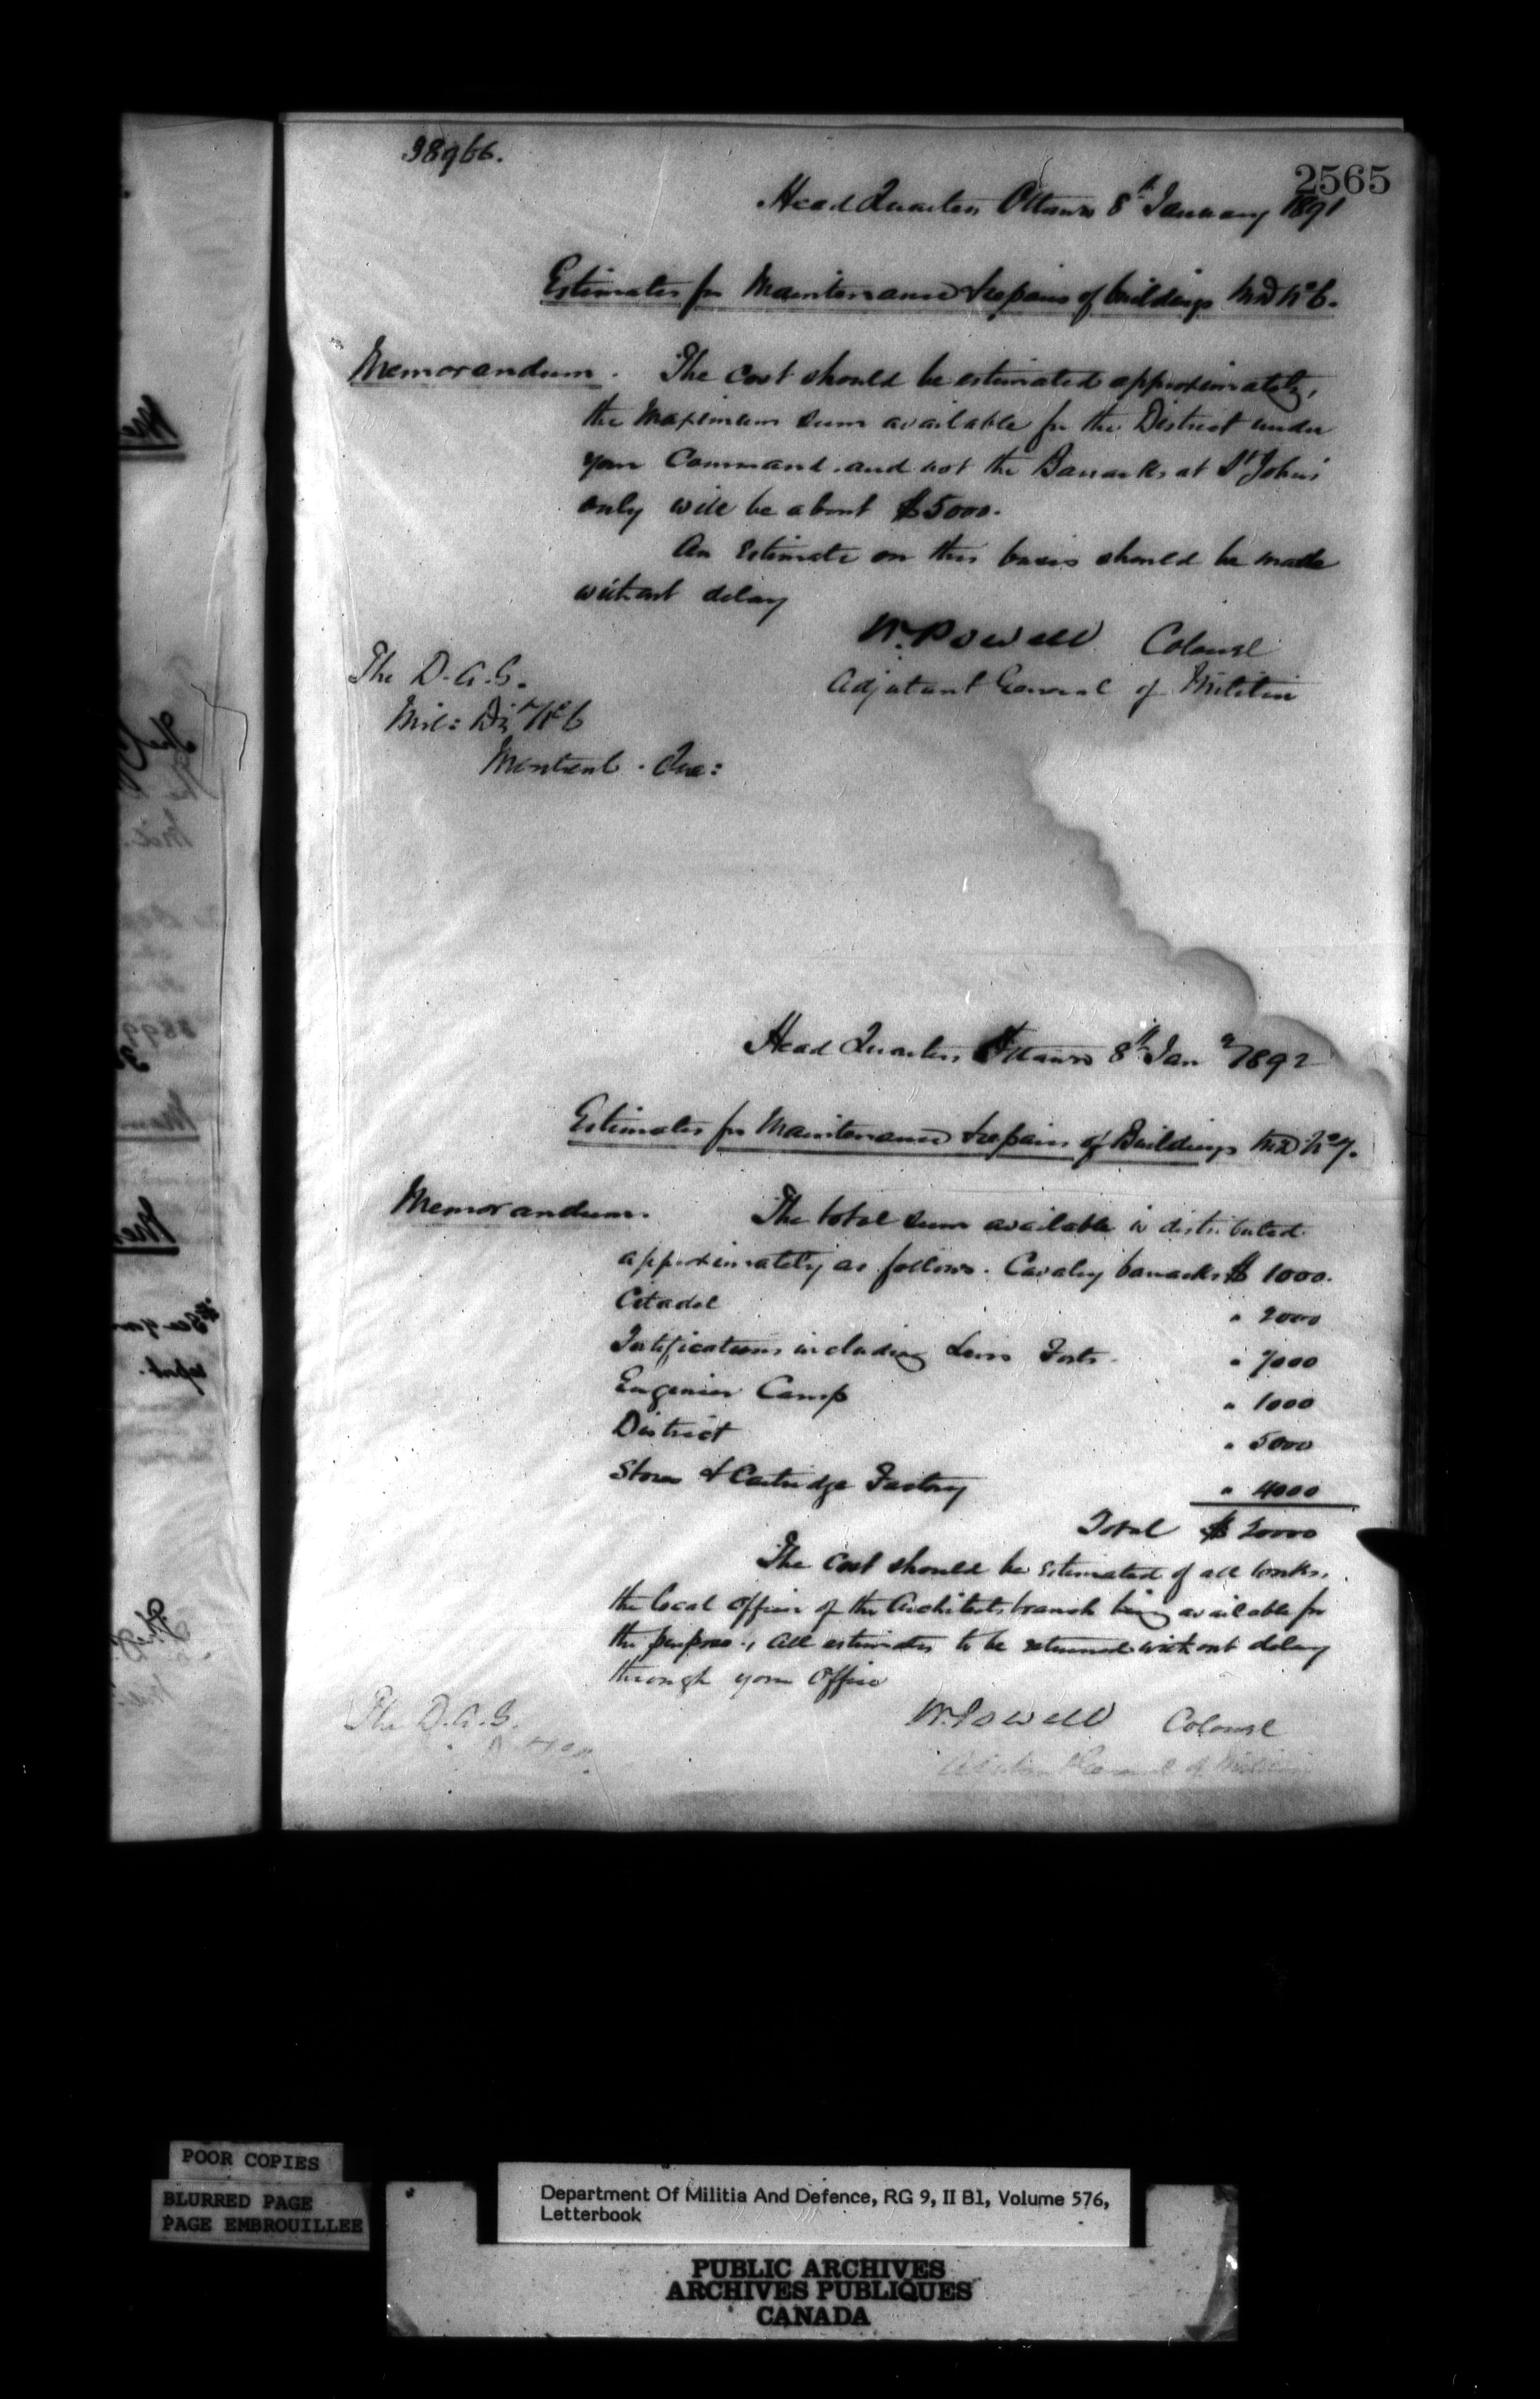 38966.
2565
Head Quarters Ottawa 8th January 1891
Estimates for Maintenance & repairs of buildings M.D. No 6.
Memorandum. The cost should be estimated approximately,
the maximum sum available for the District under
your Command and not the Barracks at St Johns
only will be about $5000.
An Estimate on this basis should be made
without delay
W. Powell Colonel
Adjutant General of Militia
The D.A.G.
Mil: Dist No 6
Montreal. Que:
Head Quarters Ottawa 8th Jany 1892
Estimates for Maintenance & repairs of Buildings M.D. No 7.
Memorandum. The total sum available is distributed
approximately as follows. Cavalry barracks $ 1000.
Citadel " 2000
Fortifications including Levis Forts. " 7000
Engineer Camp " 1000
District " 5000
Stores & Cartridge Factory " 4000
Total $ 20000
The cost should be estimated of all works,
the local officer of the Architects branch being available for
the purpose., all estimates to be returned without delay
through your office
W. Powell Colonel
Adjutant General of Militia
The D.A.G.
POOR COPIES
BLURRED PAGE
PAGE EMBROUILLEE
Department Of Militia And Defence, RG 9, II B1, Volume 576,
Letterbook
PUBLIC ARCHIVES
ARCHIVES PUBLIQUES
CANADA